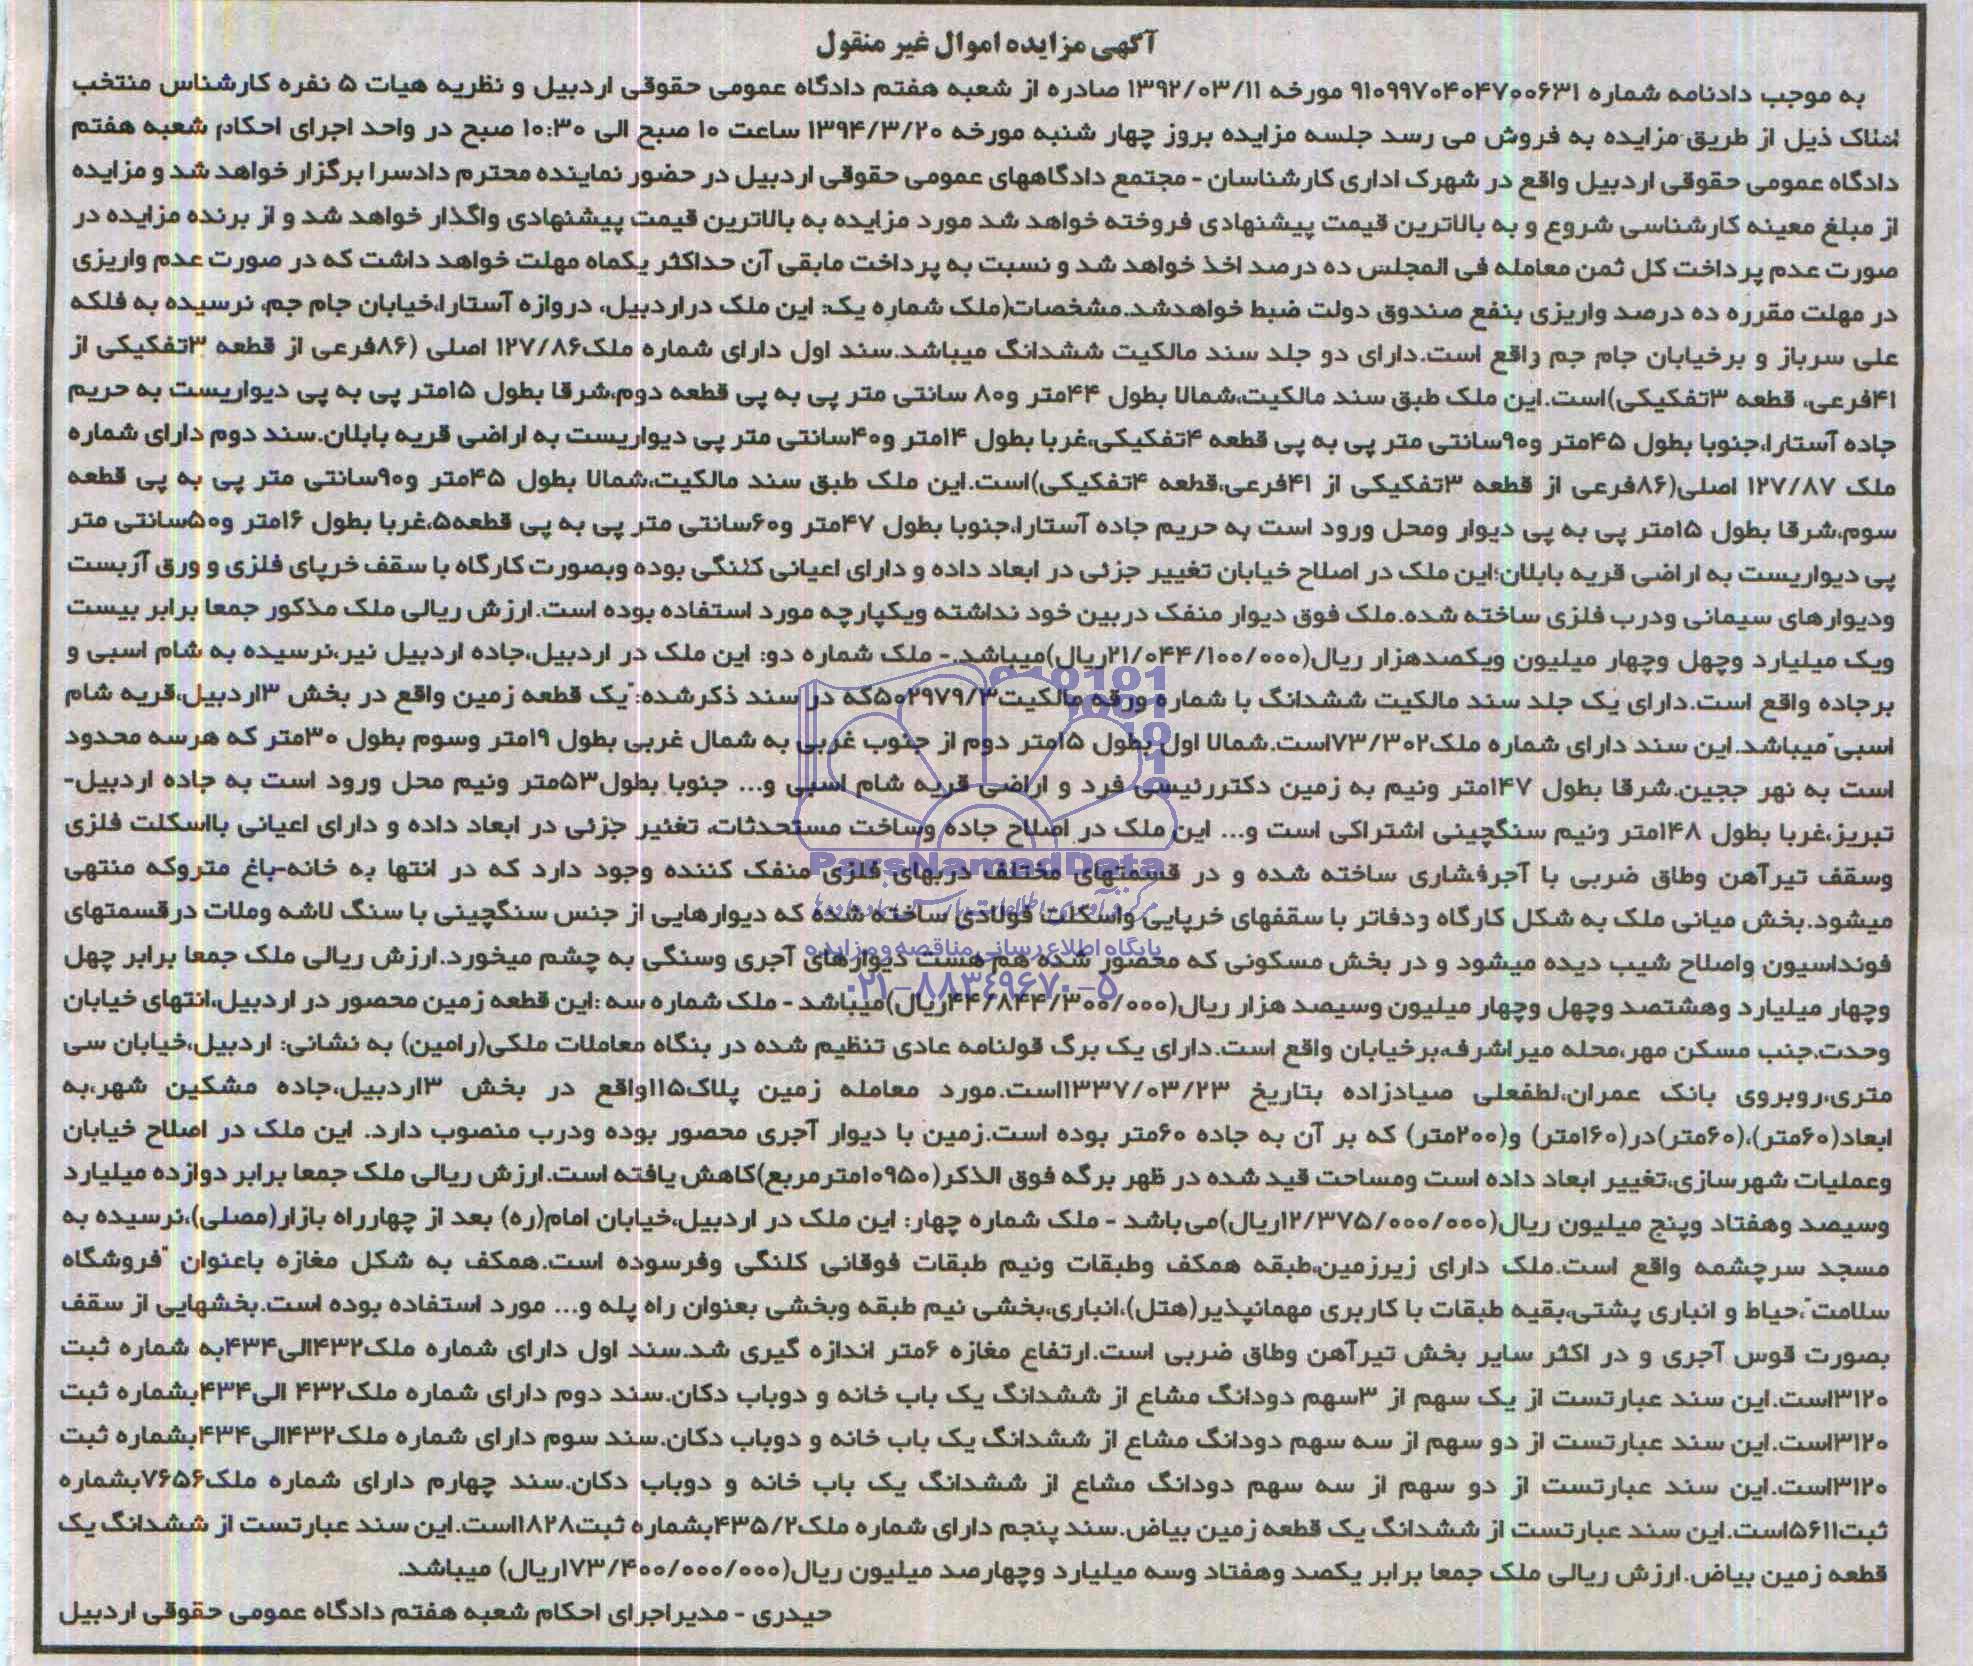 آگهی مزایده اموال غیر منقول
به موجب دادنامه شماره ۹۱۰۹۹۷۰۴۰۴۷۰۰۶۳۱ مورخه ۱۳۹۲/۰۳/۱۱ صادره از شعبه هفتم دادگاه عمومی حقوقی اردبیل و نظریه هیات ۵ نفره کارشناس منتخب
املاک ذیل از طریق مزایده به فروش می رسد جلسه مزایده بروز چهار شنبه مورخه ۱۳۹۴/۳/۲۰ ساعت ۱۰ صبح الی ۱۰:۳۰ صبح در واحد اجرای احکام شعبه هفتم
دادگاه عمومی حقوقی اردبیل واقع در شهرک اداری کارشناسان - مجتمع دادگاههای عمومی حقوقی اردبیل در حضور نماینده محترم دادسرا برگزار خواهد شد و مزایده
از مبلغ معینه کارشناسی شروع و به بالاترین قیمت پیشنهادی فروخته خواهد شد مورد مزایده به بالاترین قیمت پیشنهادی واگذار خواهد شد و از برنده مزایده در
صورت عدم پرداخت کل ثمن معامله فی المجلس ده درصد اخذ خواهد شد و نسبت به پرداخت مابقی آن حداکثر یکماه مهلت خواهد داشت که در صورت عدم واریزی
در مهلت مقرره ده درصد واریزی بنفع صندوق دولت ضبط خواهدشد.مشخصات(ملک شماره یک: این ملک دراردبیل، دروازه آستارا،خیابان جام جم، نرسیده به فلکه
علی سرباز و برخیابان جام جم واقع است.دارای دو جلد سند مالکیت ششدانگ میباشد.سند اول دارای شماره ملک۱۲۷/۸۶ اصلی (۸۶فرعی از قطعه ۳تفکیکی از
۴۱فرعی، قطعه ۳تفکیکی)است.این ملک طبق سند مالکیت،شمالا بطول ۴۴متر و۸۰ سانتی متر پی به پی قطعه دوم،شرقا بطول ۱۵متر پی به پی دیواریست به حریم
جاده آستارا،جنوبا بطول ۴۵متر و۹۰سانتی متر پی به پی قطعه ۴تفکیکی،غربا بطول ۱۴متر و۴۰سانتی متر پی دیواریست به اراضی قریه بابلان.سند دوم دارای شماره
ملک ۱۲۷/۸۷ اصلی(۸۶فرعی از قطعه ۳تفکیکی از ۴۱فرعی،قطعه ۴تفکیکی)است.این ملک طبق سند مالکیت،شمالا بطول ۴۵متر و۹۰سانتی متر پی به پی قطعه
سوم،شرقا بطول ۱۵متر پی به پی دیوار ومحل ورود است به حریم جاده آستارا،جنوبا بطول ۴۷متر و۶۰سانتی متر پی به پی قطعه۵،غربا بطول ۱۶متر و۵۰سانتی متر
پی دیواریست به اراضی قریه بابلان؛این ملک در اصلاح خیابان تغییر جزئی در ابعاد داده و دارای اعیانی کلنگی بوده وبصورت کارگاه با سقف خرپای فلزی و ورق آزبست
ودیوارهای سیمانی ودرب فلزی ساخته شده.ملک فوق دیوار منفک دربین خود نداشته ویکپارچه مورد استفاده بوده است.ارزش ریالی ملک مذکور جمعا برابر بیست
ویک میلیارد وچهل وچهار میلیون ویکصدهزار ریال(۲۱/۰۴۴/۱۰۰/۰۰۰ریال)میباشد. - ملک شماره دو: این ملک در اردبیل،جاده اردبیل نیر،نرسیده به شام اسبی و
برجاده واقع است.دارای یک جلد سند مالکیت ششدانگ با شماره ورقه مالکیت۵۰۲۹۷۹/۳که در سند ذکرشده:"یک قطعه زمین واقع در بخش ۳اردبیل،قریه شام
اسبی"میباشد.این سند دارای شماره ملک۷۳/۳۰۲است.شمالا اول بطول ۱۵متر دوم از جنوب غربی به شمال غربی بطول ۱۹متر وسوم بطول ۳۰متر که هرسه محدود
است به نهر ججین.شرقا بطول ۱۴۷متر ونیم به زمین دکتررئیسی فرد و اراضی قریه شام اسبی و... جنوبا بطول۵۳متر ونیم محل ورود است به جاده اردبیل-
تبریز،غربا بطول ۱۴۸متر ونیم سنگچینی اشتراکی است و... این ملک در اصلاح جاده وساخت مستحدثات، تغئیر جزئی در ابعاد داده و دارای اعیانی بااسکلت فلزی
وسقف تیرآهن وطاق ضربی با آجرفشاری ساخته شده و در قسمتهای مختلف دربهای فلزی منفک کننده وجود دارد که در انتها به خانه-باغ متروکه منتهی
میشود.بخش میانی ملک به شکل کارگاه ودفاتر با سقفهای خرپایی واسکلت فولادی ساخته شده که دیوارهایی از جنس سنگچینی با سنگ لاشه وملات درقسمتهای
فونداسیون واصلاح شیب دیده میشود و در بخش مسکونی که محصور شده هم هست دیوارهای آجری وسنگی به چشم میخورد.ارزش ریالی ملک جمعا برابر چهل
وچهار میلیارد وهشتصد وچهل وچهار میلیون وسیصد هزار ریال(۴۴/۸۴۴/۳۰۰/۰۰۰ریال)میباشد - ملک شماره سه :این قطعه زمین محصور در اردبیل،انتهای خیابان
وحدت،جنب مسکن مهر،محله میراشرف،برخیابان واقع است.دارای یک برگ قولنامه عادی تنظیم شده در بنگاه معاملات ملکی(رامین) به نشانی: اردبیل،خیابان سی
متری،روبروی بانک عمران،لطفعلی صیادزاده بتاریخ ۱۳۳۷/۰۳/۲۳است.مورد معامله زمین پلاک۱۱۵واقع در بخش ۳اردبیل،جاده مشکین شهر،به
ابعاد(۶۰متر)،(۶۰متر)در(۱۶۰متر) و(۲۰۰متر) که بر آن به جاده ۶۰متر بوده است.زمین با دیوار آجری محصور بوده ودرب منصوب دارد. این ملک در اصلاح خیابان
وعملیات شهرسازی،تغییر ابعاد داده است ومساحت قید شده در ظهر برگه فوق الذکر(۱۰۹۵۰مترمربع)کاهش یافته است.ارزش ریالی ملک جمعا برابر دوازده میلیارد
وسیصد وهفتاد وپنج میلیون ریال(۱۲/۳۷۵/۰۰۰/۰۰۰ریال)می‌باشد - ملک شماره چهار: این ملک در اردبیل،خیابان امام(ره) بعد از چهارراه بازار(مصلی)،نرسیده به
مسجد سرچشمه واقع است.ملک دارای زیرزمین،طبقه همکف وطبقات ونیم طبقات فوقانی کلنگی وفرسوده است.همکف به شکل مغازه باعنوان "فروشگاه
سلامت"،حیاط و انباری پشتی،بقیه طبقات با کاربری مهمانپذیر(هتل)،انباری،بخشی نیم طبقه وبخشی بعنوان راه پله و... مورد استفاده بوده است.بخشهایی از سقف
بصورت قوس آجری و در اکثر سایر بخش تیرآهن وطاق ضربی است.ارتفاع مغازه ۶متر اندازه گیری شد.سند اول دارای شماره ملک۴۳۲الی۴۳۴به شماره ثبت
۳۱۲۰است.این سند عبارتست از یک سهم از ۳سهم دودانگ مشاع از ششدانگ یک باب خانه و دوباب دکان.سند دوم دارای شماره ملک۴۳۲ الی۴۳۴بشماره ثبت
۳۱۲۰است.این سند عبارتست از دو سهم از سه سهم دودانگ مشاع از ششدانگ یک باب خانه و دوباب دکان.سند سوم دارای شماره ملک۴۳۲الی۴۳۴بشماره ثبت
۳۱۲۰است.این سند عبارتست از دو سهم از سه سهم دودانگ مشاع از ششدانگ یک باب خانه و دوباب دکان.سند چهارم دارای شماره ملک۷۶۵۶بشماره
ثبت۵۶۱۱است.این سند عبارتست از ششدانگ یک قطعه زمین بیاض.سند پنجم دارای شماره ملک۴۳۵/۲بشماره ثبت۱۱۸۲۸است.این سند عبارتست از ششدانگ یک
قطعه زمین بیاض.ارزش ریالی ملک جمعا برابر یکصد وهفتاد وسه میلیارد وچهارصد میلیون ریال(۱۷۳/۴۰۰/۰۰۰/۰۰۰ریال) میباشد.
حیدری - مدیراجرای احکام شعبه هفتم دادگاه عمومی حقوقی اردبیل
ParsNamadData
پایگاه اطلاع رسانی مناقصه و مزایده
۰۲۱-۸۸۳۴۹۶۷۰-۵